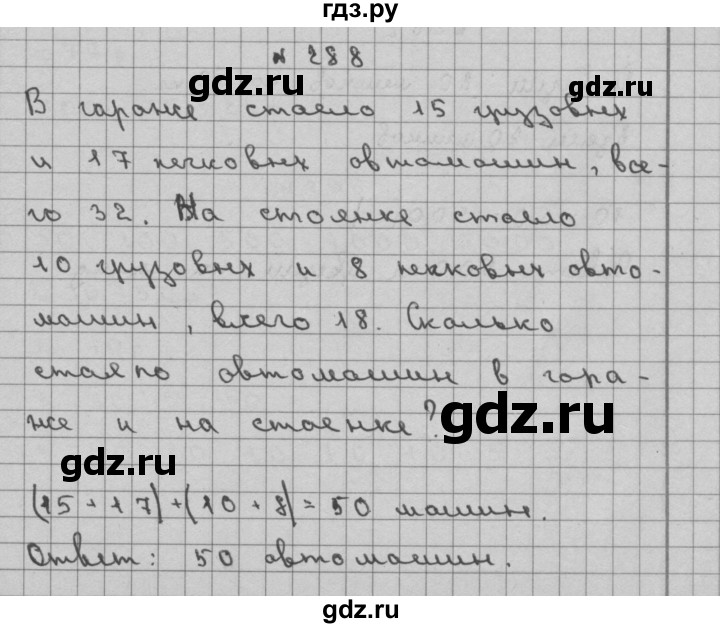 гдз.ру
№ 288
gdz.ru gdz.ru
В гараже стояло 15 грузовых
и 17 легковых автомашин, все-
го 32. На стоянке стояло
10 грузовых и 8 легковых авто-
машин, всего 18. Сколько
стояло автомашин в гара-
же и на стоянке?
gdz.ru
gdz.ru
(15 + 17) + (10 + 8) = 50 машин.
Ответ: 50 автомашин.
gdz.ru